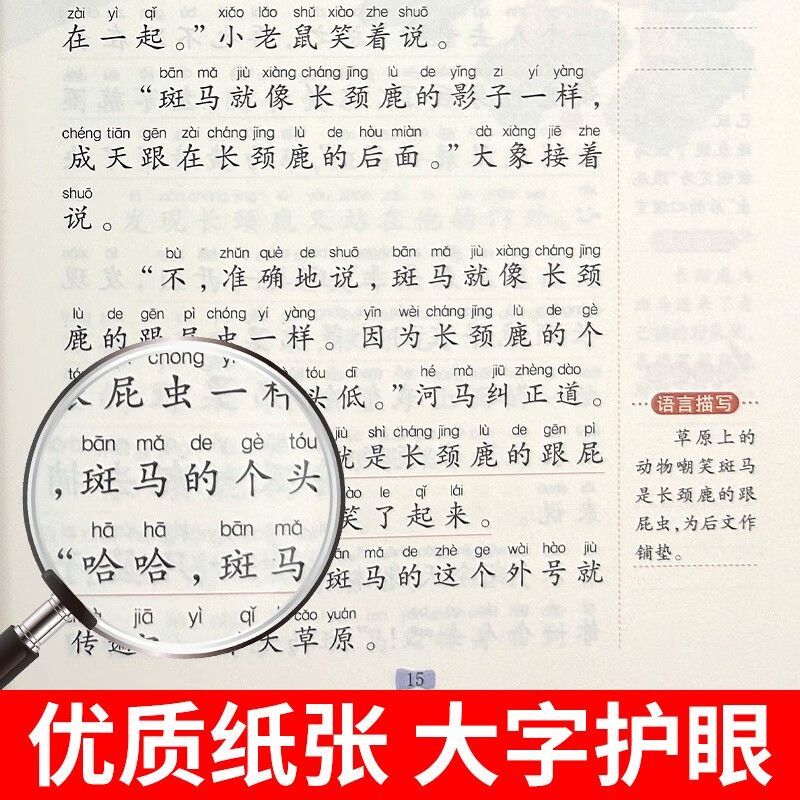 zài yì qǐ xiǎo lǎo shǔ xiào zhe shuō
在一起。”小老鼠笑着说。
bān mǎ jiù xiàng cháng jǐng lù de yǐng zi yí yàng
“斑马就像长颈鹿的影子一样，
chéng tiān gēn zài cháng jǐng lù de hòu miàn dà xiàng jiē zhe
成天跟在长颈鹿的后面。”大象接着
shuō
说。
bù zhǔn què de shuō bān mǎ jiù xiàng cháng jǐng
“不，准确地说，斑马就像长颈
lù de gēn pì chóng yí yàng yīn wèi cháng jǐng lù de gè
鹿的跟屁虫一样。因为长颈鹿的个
tóu dī hé mǎ jiū zhèng dào
头低。”河马纠正道。
chóng
屁虫一
bān mǎ de gè tóu
，斑马的个头
jiù shì cháng jǐng lù de gēn pì
就是长颈鹿的跟屁
le qǐ lái
笑了起来。
hā hā bān mǎ
“哈哈，斑马
mǎ de zhè ge wài hào jiù
斑马的这个外号就
jiā yì qǐ cǎo yuán
传遍 草原。
15
语言描写
草原上的
动物嘲笑斑马
是长颈鹿的跟
屁虫，为后文作
铺垫。
优质纸张 大字护眼